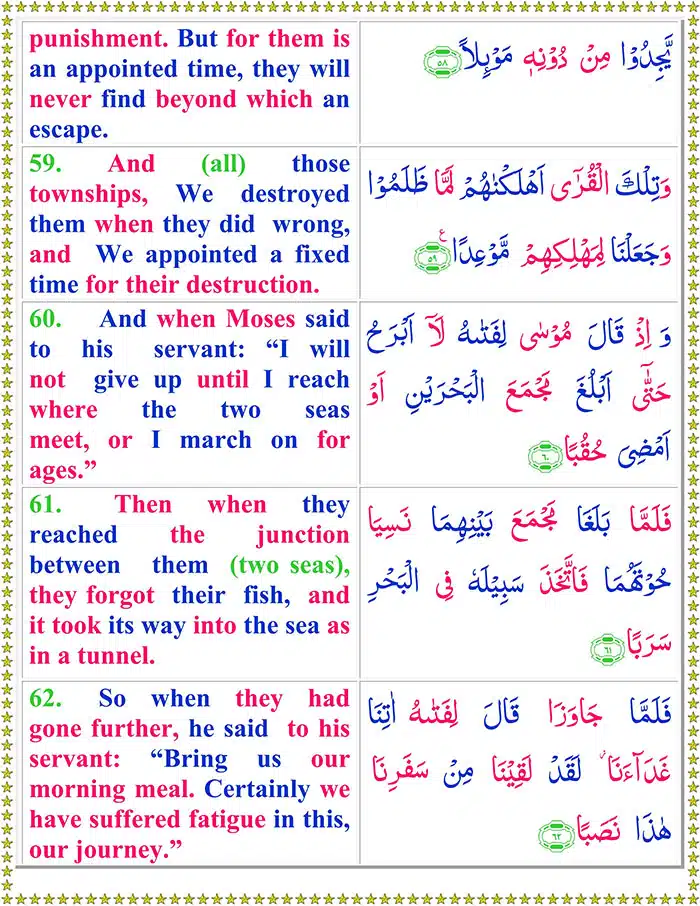 punishment. But for them is
an appointed time, they will
never find beyond which an
escape.
يَّجِدُوۡا مِنۡ دُوۡنِهٖ مَوۡئِلًا ﴿۵۸﴾
59. And (all) those
townships, We destroyed
them when they did wrong,
and We appointed a fixed
time for their destruction.
وَتِلۡكَ الۡقُرٰٓى اَهۡلَكۡنٰهُمۡ لَمَّا ظَلَمُوۡا
وَجَعَلۡنَا لِمَهۡلِكِهِمۡ مَّوۡعِدًا ﴿۵۹﴾ ع
60. And when Moses said
to his servant: “I will
not give up until I reach
where the two seas
meet, or I march on for
ages.”
وَ اِذۡ قَالَ مُوۡسٰى لِفَتٰٮهُ لَاۤ اَبۡرَحُ
حَتّٰۤى اَبۡلُغَ مَجۡمَعَ الۡبَحۡرَيۡنِ اَوۡ
اَمۡضِىَ حُقُبًا ﴿۶۰﴾
61. Then when they
reached the junction
between them (two seas),
they forgot their fish, and
it took its way into the sea as
in a tunnel.
فَلَمَّا بَلَغَا مَجۡمَعَ بَيۡنِهِمَا نَسِيَا
حُوۡتَهُمَا فَاتَّخَذَ سَبِيۡلَهٗ فِى الۡبَحۡرِ
سَرَبًا ﴿۶۱﴾
62. So when they had
gone further, he said to his
servant: “Bring us our
morning meal. Certainly we
have suffered fatigue in this,
our journey.”
فَلَمَّا جَاوَزَا قَالَ لِفَتٰٮهُ اٰتِنَا
غَدَآءَنَا لَقَدۡ لَقِيۡنَا مِنۡ سَفَرِنَا
هٰذَا نَصَبًا ﴿۶۲﴾